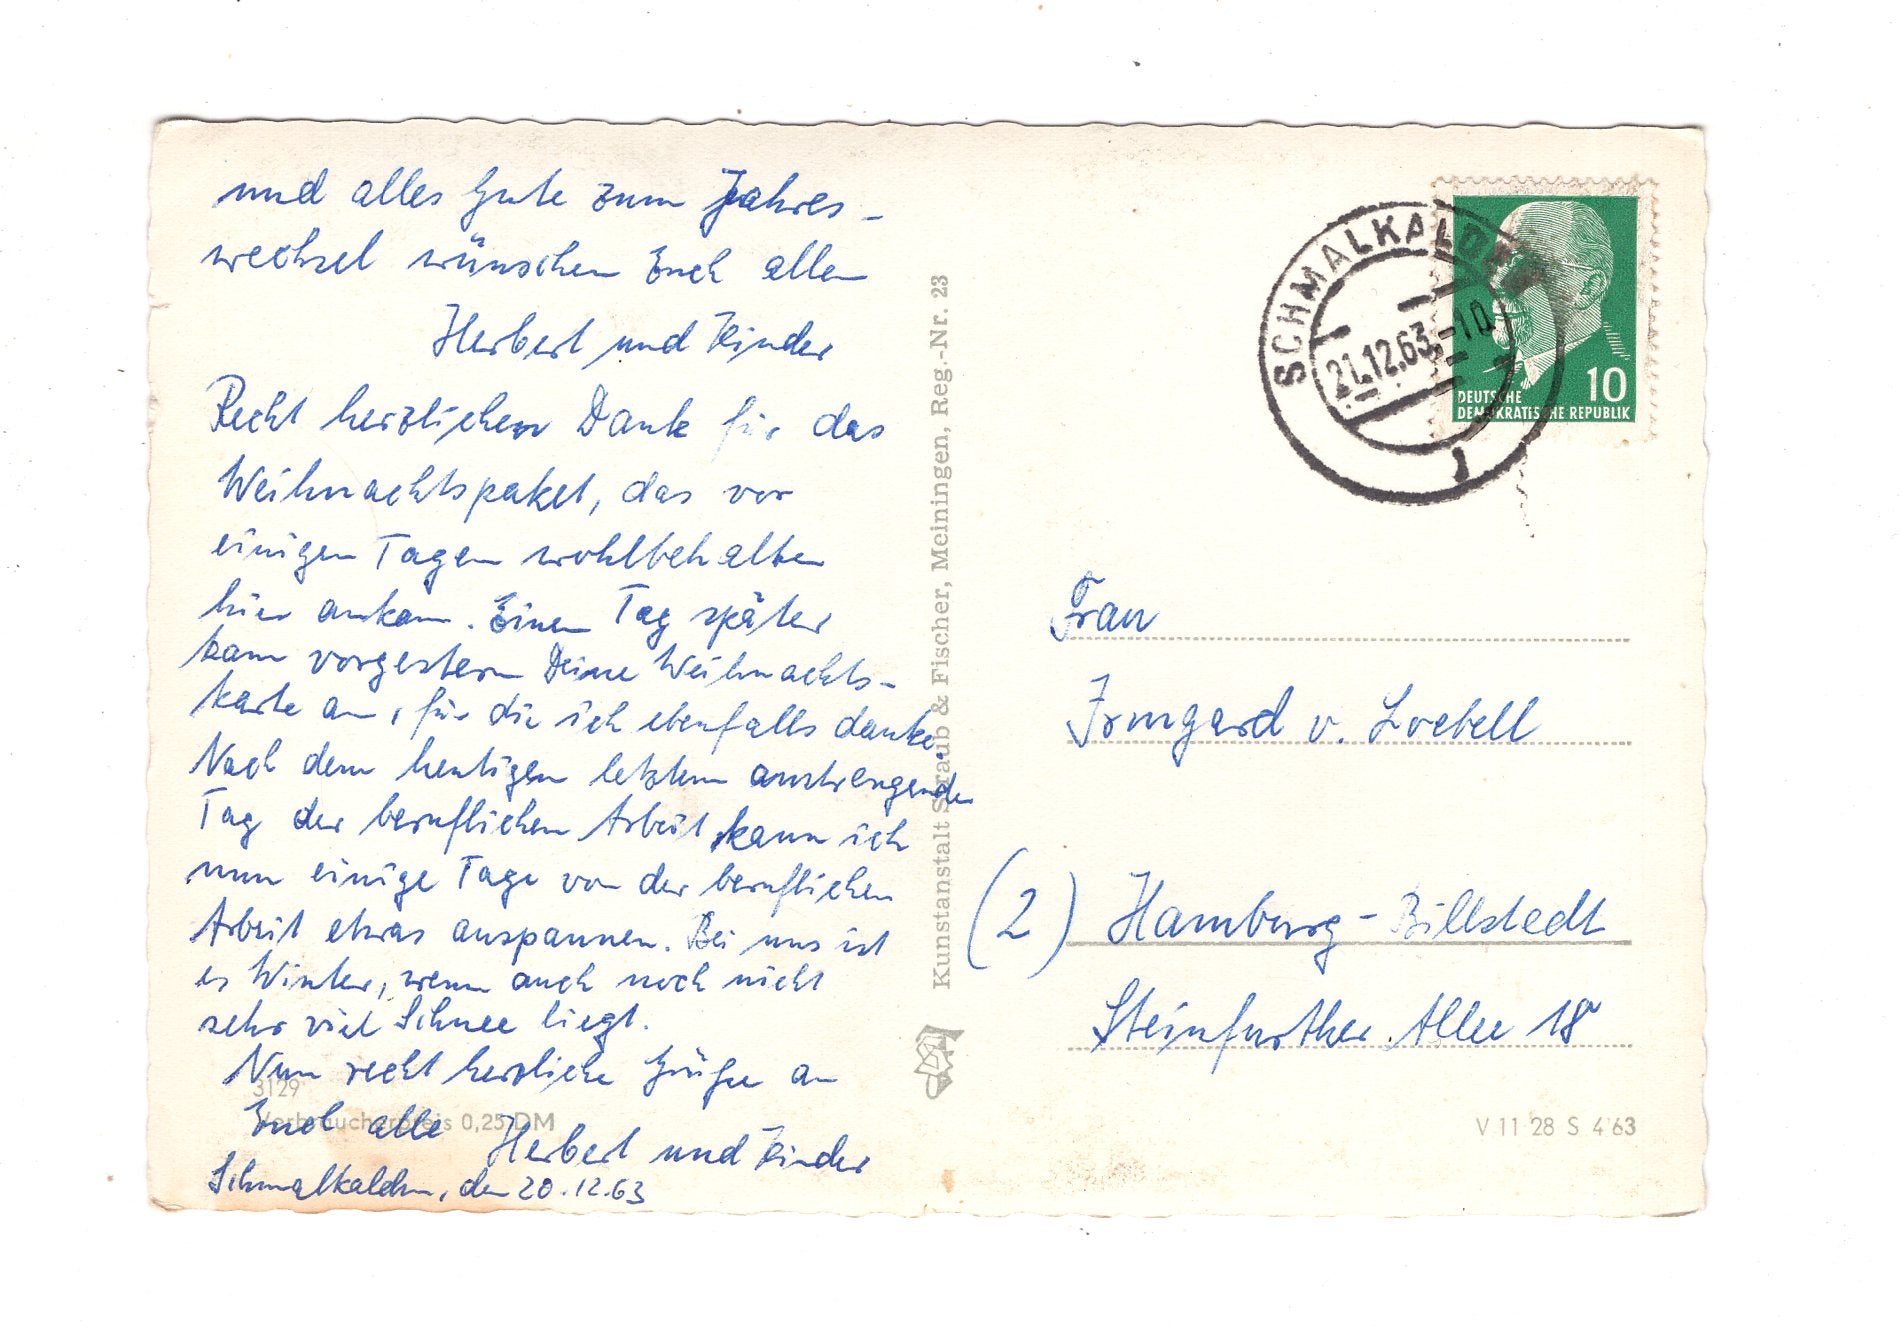 und alles Gute zum Jahres-
wechsel wünschen Euch allen
Herbert und Kinder
Recht herzlichen Dank für das
Weihnachtspaket, das vor
einigen Tagen wohlbehalten
hier ankam. Einen Tag später
kam vorgestern Deine Weihnachts-
karte an, für die ich ebenfalls danke.
Nach dem heutigen letzten anstrengenden
Tag der beruflichen Arbeit kann ich
nun einige Tage von der beruflichen
Arbeit etwas ausspannen. Bei uns ist
es Winter, wenn auch noch nicht
sehr viel Schnee liegt.
Nun recht herzliche Grüße an
Euch alle
Herbert und Kinder
Schmalkalden, den 20.12.63
3129
Verbraucherpreis 0,25 DM
Kunstanstalt Straub & Fischer, Meiningen, Reg.-Nr. 23
SCHMALKALDEN
21.12.63-10
1
10
DEUTSCHE
DEMOKRATISCHE REPUBLIK
Frau
Irmgard v. Loebell
(2) Hamburg-Billstedt
Steinfurther Allee 18
V 11 28 S 4'63